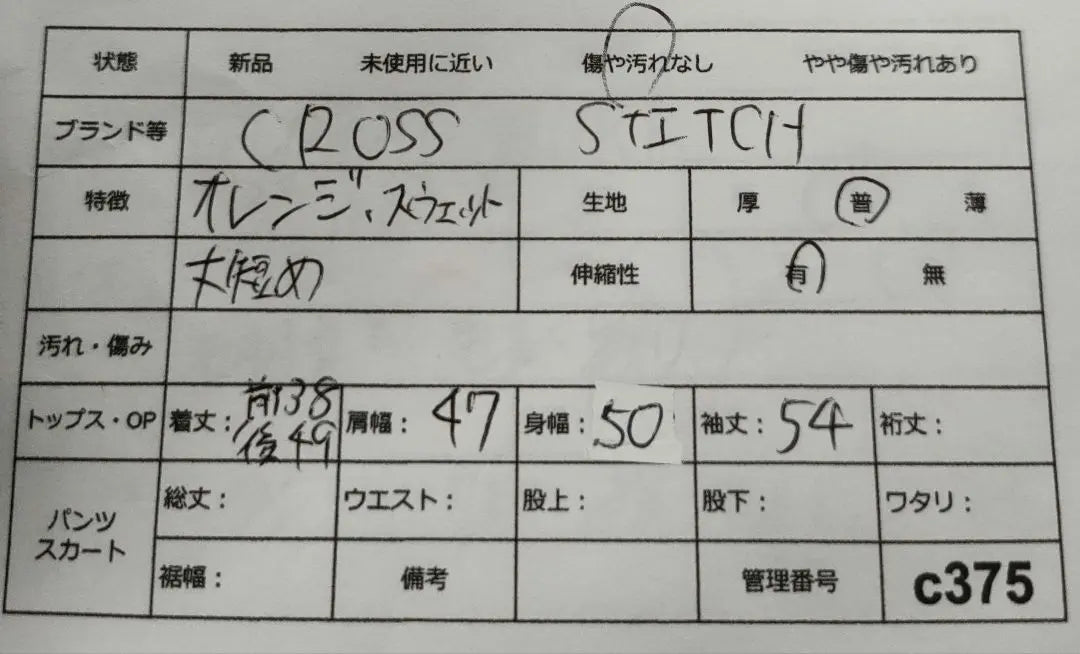 状態 新品 未使用に近い 傷や汚れなし やや傷や汚れあり
ブランド等 CROSS STITCH
特徴 オレンジ、スウェット 生地 厚 普 薄
丈短め 伸縮性 有 無
汚れ・傷み
トップス・OP 着丈：前38 後49 肩幅：47 身幅：50 袖丈：54 裄丈：
パンツ スカート 総丈： ウエスト： 股上： 股下： ワタリ：
裾幅： 備考 管理番号 c375